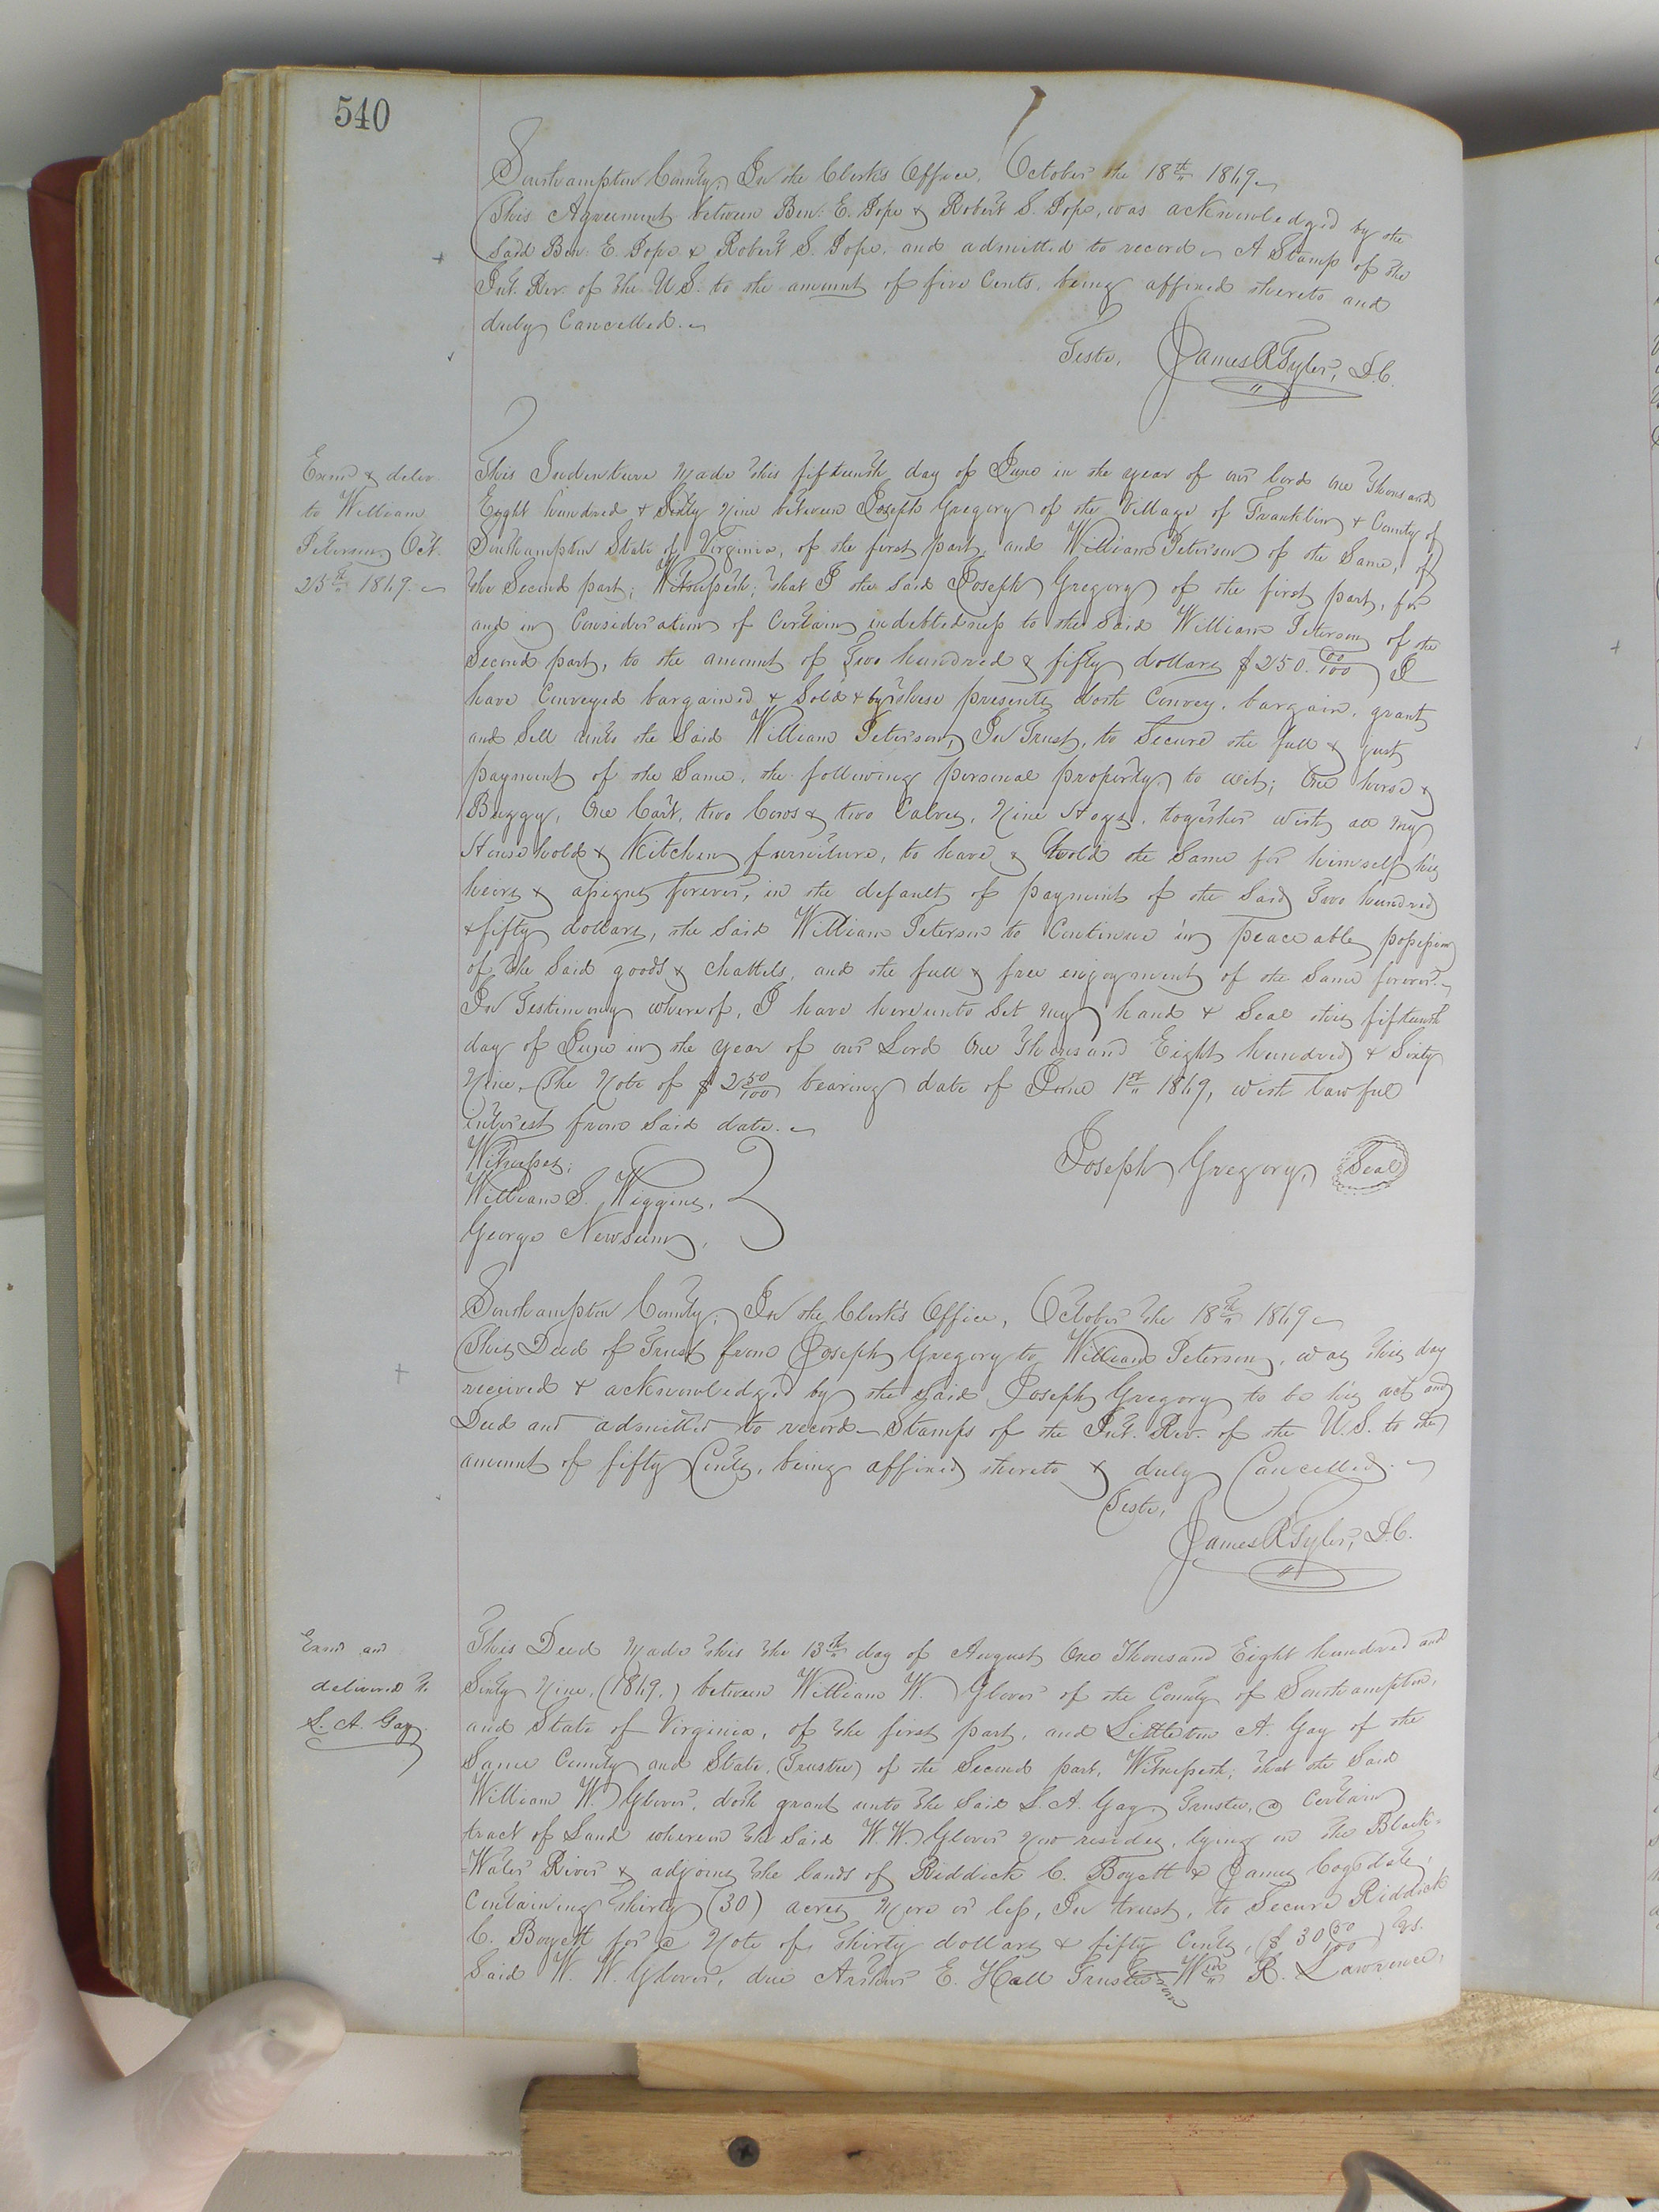 540
Southampton County, In the Clerk's Office, October the 18th 1869
This Agreement between Ben: E. Pope & Robert S. Pope, was acknowledged by the
said Ben: E. Pope & Robert S. Pope, and admitted to record. A Stamp of the
Int. Rev. of the U.S. to the amount of five Cents, being affixed thereto and
duly Cancelled.
Teste, James R Tyler, D.C.
Exmd & deliv
to William
Peterson Oct.
25th 1869.
This Indenture Made this fifteenth day of June in the year of our Lord One Thousand
Eight hundred & Sixty Nine between Joseph Gregory of the Village of Franklin & County of
Southampton State of Virginia, of the first part, and William Peterson of the Same, of
the Second part; Witnesseth; that I the said Joseph Gregory of the first part, for
and in Consideration of Certain indebtedness to the said William Peterson of the
Second part, to the amount of Two hundred & fifty dollars $250.00/100 I
have Conveyed bargained & Sold & by these presents doth Convey, bargain, grant
and Sell unto the Said William Peterson, In Trust, to Secure the full & just
payment of the Same, the following personal property, to wit; One horse &
Buggy, One Cart, two Cows & two Calves, Nine Hogs, together with all my
House hold & Kitchen furniture, to have & hold the Same for himself his
heirs & assigns forever, in the default of payment of the Said Two hundred
& fifty dollars, the said William Peterson to Continue in peaceable possession
of the Said goods & chattels, and the full & free enjoyment of the Same forever.
In Testimony whereof, I have hereunto Set my hand & Seal this fifteenth
day of June in the year of our Lord One Thousand Eight hundred & Sixty
Nine. The Note of $250/100 bearing date of June 1st 1869, with lawful
interest from Said date.
Witnesses;
Joseph Gregory, Seal
William S. Wiggins,
George Newsum,
Southampton County; In the Clerk's Office, October the 18th 1869
This Deed of Trust from Joseph Gregory to William Peterson, was this day
received & acknowledged by the said Joseph Gregory to be his act and
Deed and admitted to record. Stamps of the Int. Rev. of the U.S. to the
amount of fifty Cents, being affixed thereto & duly Cancelled.
Teste,
James R Tyler, D.C.
Exmd and
delivered to
L. A. Gay.
This Deed Made this the 13th day of August One Thousand Eight hundred and
Sixty Nine, (1869.) between William W. Glover of the County of Southampton,
and State of Virginia, of the first part, and Littleton A. Gay of the
Same County and State, (Trustee) of the Second part, Witnesseth; that the Said
William W. Glover, doth grant unto the Said L. A. Gay, Trustee, a Certain
tract of Land wherein the Said W. W. Glover now resides, lying on the Black-
Water River & adjoins the lands of Riddick C. Boyett & James
Containing thirty (30) acres More or less, In trust, to Secure Riddick
C. Boyett for a Note of thirty dollars & fifty Cents, ($30 50/100)
Said W. W. Glover, due Arthur E. Hall Trustee Wm R. Lawrence,